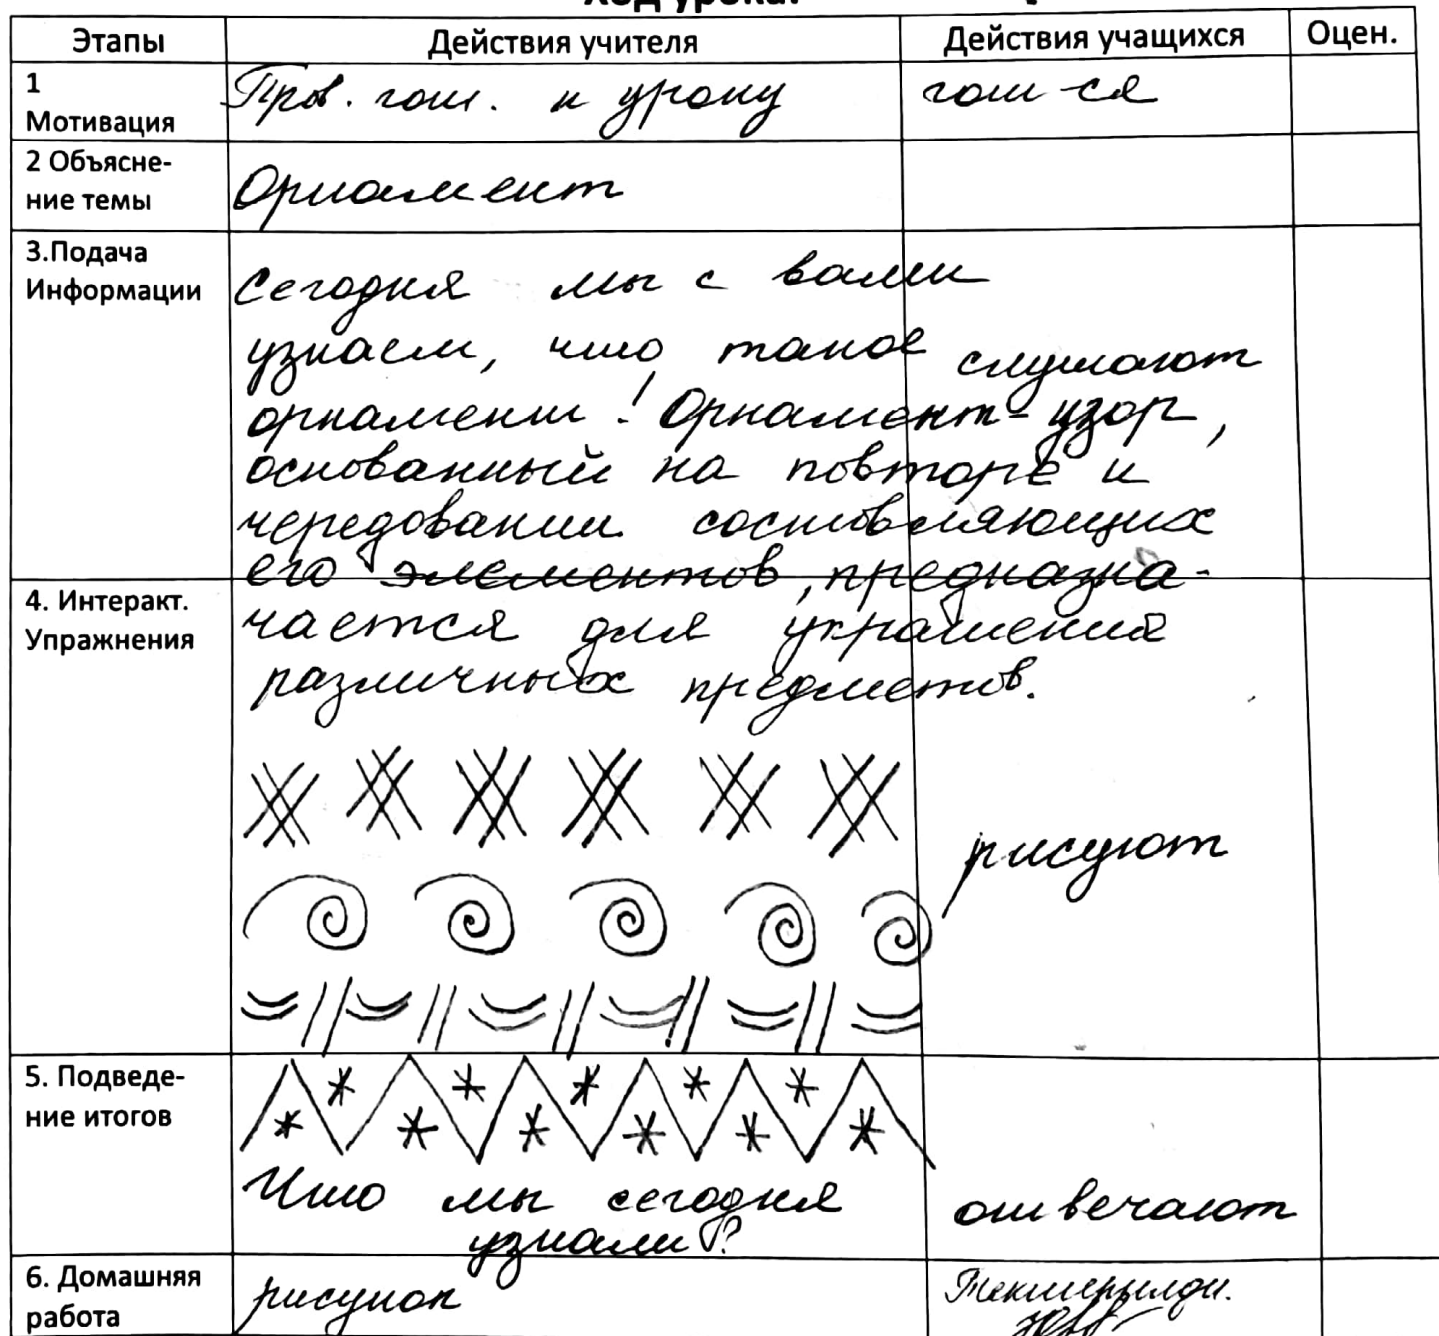 Ход урока:
Этапы Действия учителя Действия учащихся Оцен.
1
Мотивация
Пров. гот. к уроку гот-ся
2 Объясне-
ние темы
Орнамент
3.Подача
Информации
Сегодня мы с вами
узнаем, что такое
слушают
орнамент! Орнамент - узор,
основанный на повторе и
чередовании состовляющих
его элементов, предназна-
4. Интеракт.
Упражнения
чается для украшения
различных предметов.
рисуют
5. Подведе-
ние итогов
Что мы сегодня
узнали?
отвечают
6. Домашняя
работа
рисунок
Текшерилди.